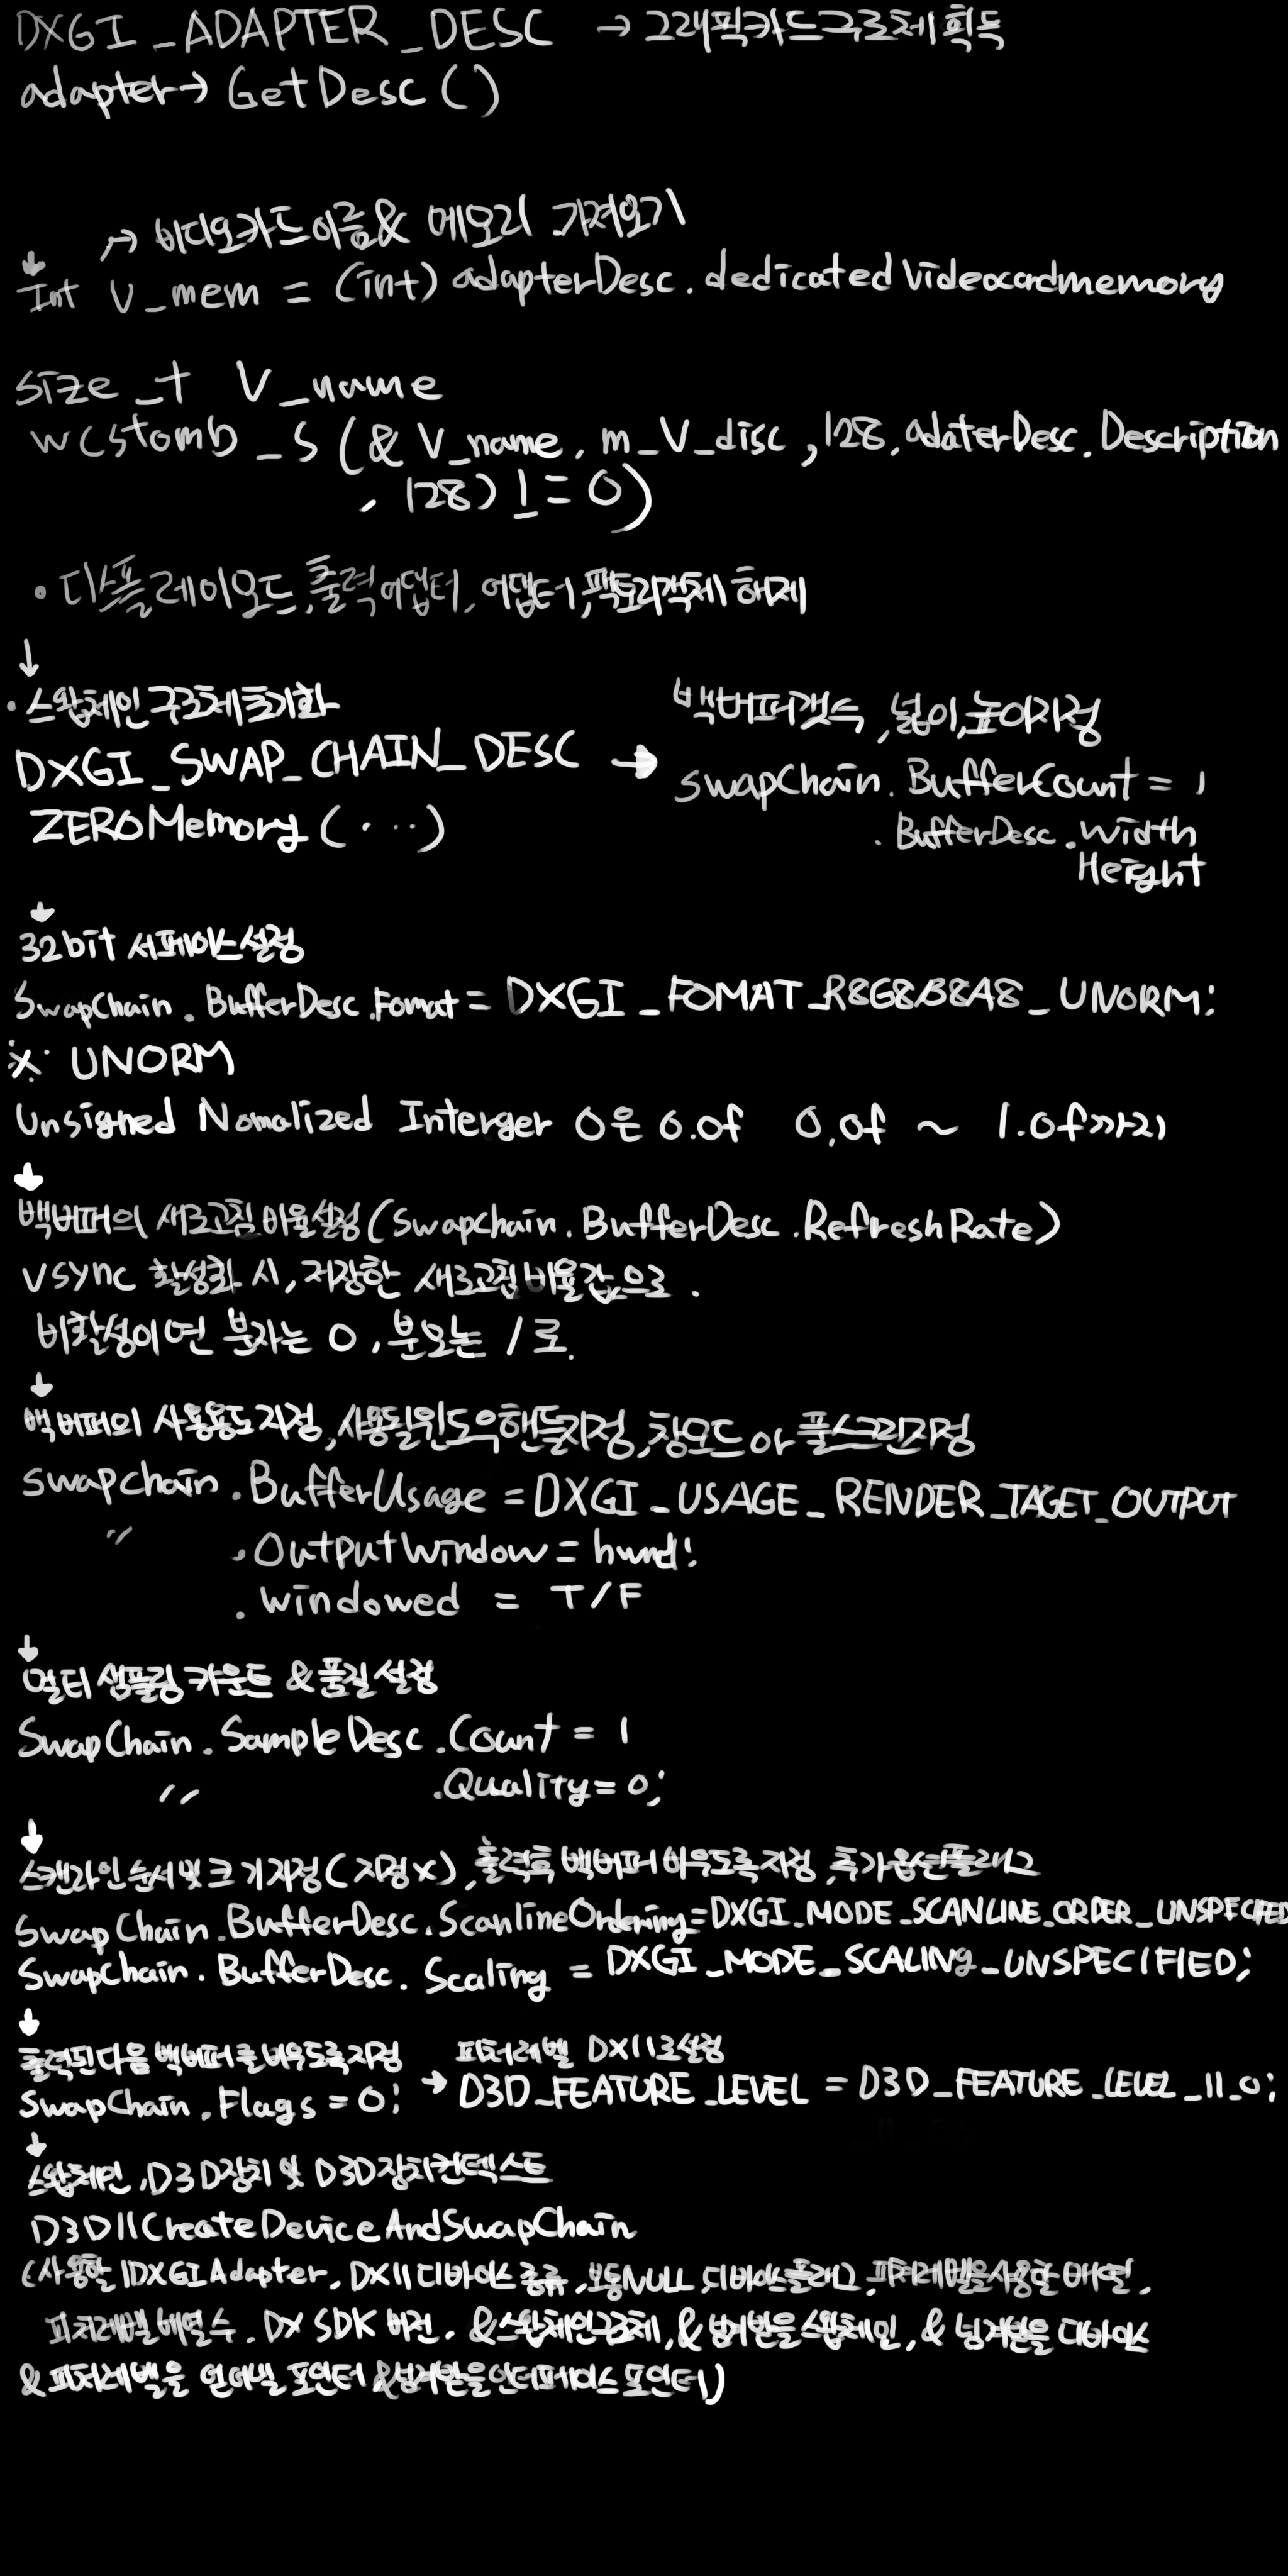 DXGI_ADAPTER_DESC → 그래픽카드구조체 획득
adapter→ GetDesc()
→ 비디오카드이름& 메모리 가져오기
↓
Int V_mem = (int) adapterDesc.dedicatedVideocardmemory
size_t V_name
wcstomb_s (& V_name, m_V_disc, 128, adaterDesc.Description
, 128) != 0)
• 디스플레이모드, 출력어댑터, 어댑터, 팩토리객체 해제
↓
• 스왑체인 구조체초기화
DXGI_SWAP_CHAIN_DESC →
ZEROMemory(...)
백버퍼갯수, 넓이, 높이지정
swapChain.BufferCount = 1
.BufferDesc.width
Height
↓
32bit 서페이스설정
SwapChain.BufferDesc.Fomat = DXGI_FOMAT_R8G8B8A8_UNORM;
※ UNORM
Unsigned Nomalized Interger 0은 0.0f 0.0f ~ 1.0f까지
↓
백버퍼의 새로고침 비율설정(swapchain.BufferDesc.RefreshRate)
vsync 활성화 시, 저장한 새로고침비율값으로.
비활성이면 분자는 0, 분모는 1로.
↓
백버퍼의 사용용도지정, 사용될윈도우핸들지정, 창모드or 풀스크린지정
swapchain.BufferUsage = DXGI_USAGE_RENDER_TAGET_OUTPUT
〃 .OutputWindow = hwnd;
.windowed = T/F
↓
멀티샘플링 카운트 & 품질설정
SwapChain.SampleDesc.Count = 1
〃 .Quality = 0;
↓
스캔라인순서및 크기지정(지정x), 출력후 백버퍼 비우도록지정, 추가옵션플래그
SwapChain.BufferDesc.ScanlineOrdering=DXGI_MODE_SCANLINE_ORDER_UNSPECIFIED
SwapChain.BufferDesc.Scaling = DXGI_MODE_SCALING_UNSPECIFIED;
↓
출력된다음 백버퍼를 비우도록지정
swapChain.Flags = 0;
피처레벨 DX11로설정
→ D3D_FEATURE_LEVEL = D3D_FEATURE_LEVEL_11_0;
↓
스왑체인, D3D장치 및 D3D장치컨텍스트
D3D11CreateDeviceAndSwapChain
(사용할 IDXGIAdapter, DX11디바이스종류, 보통NULL, 디바이스플래그, 피처레벨을사용할 배열,
피처레벨배열수, DX SDK 버전, &스왑체인구조체, & 넘겨받을스왑체인, & 넘겨받을 디바이스
& 피처레벨을 얻어낼 포인터, &넘겨받을인터페이스포인터)